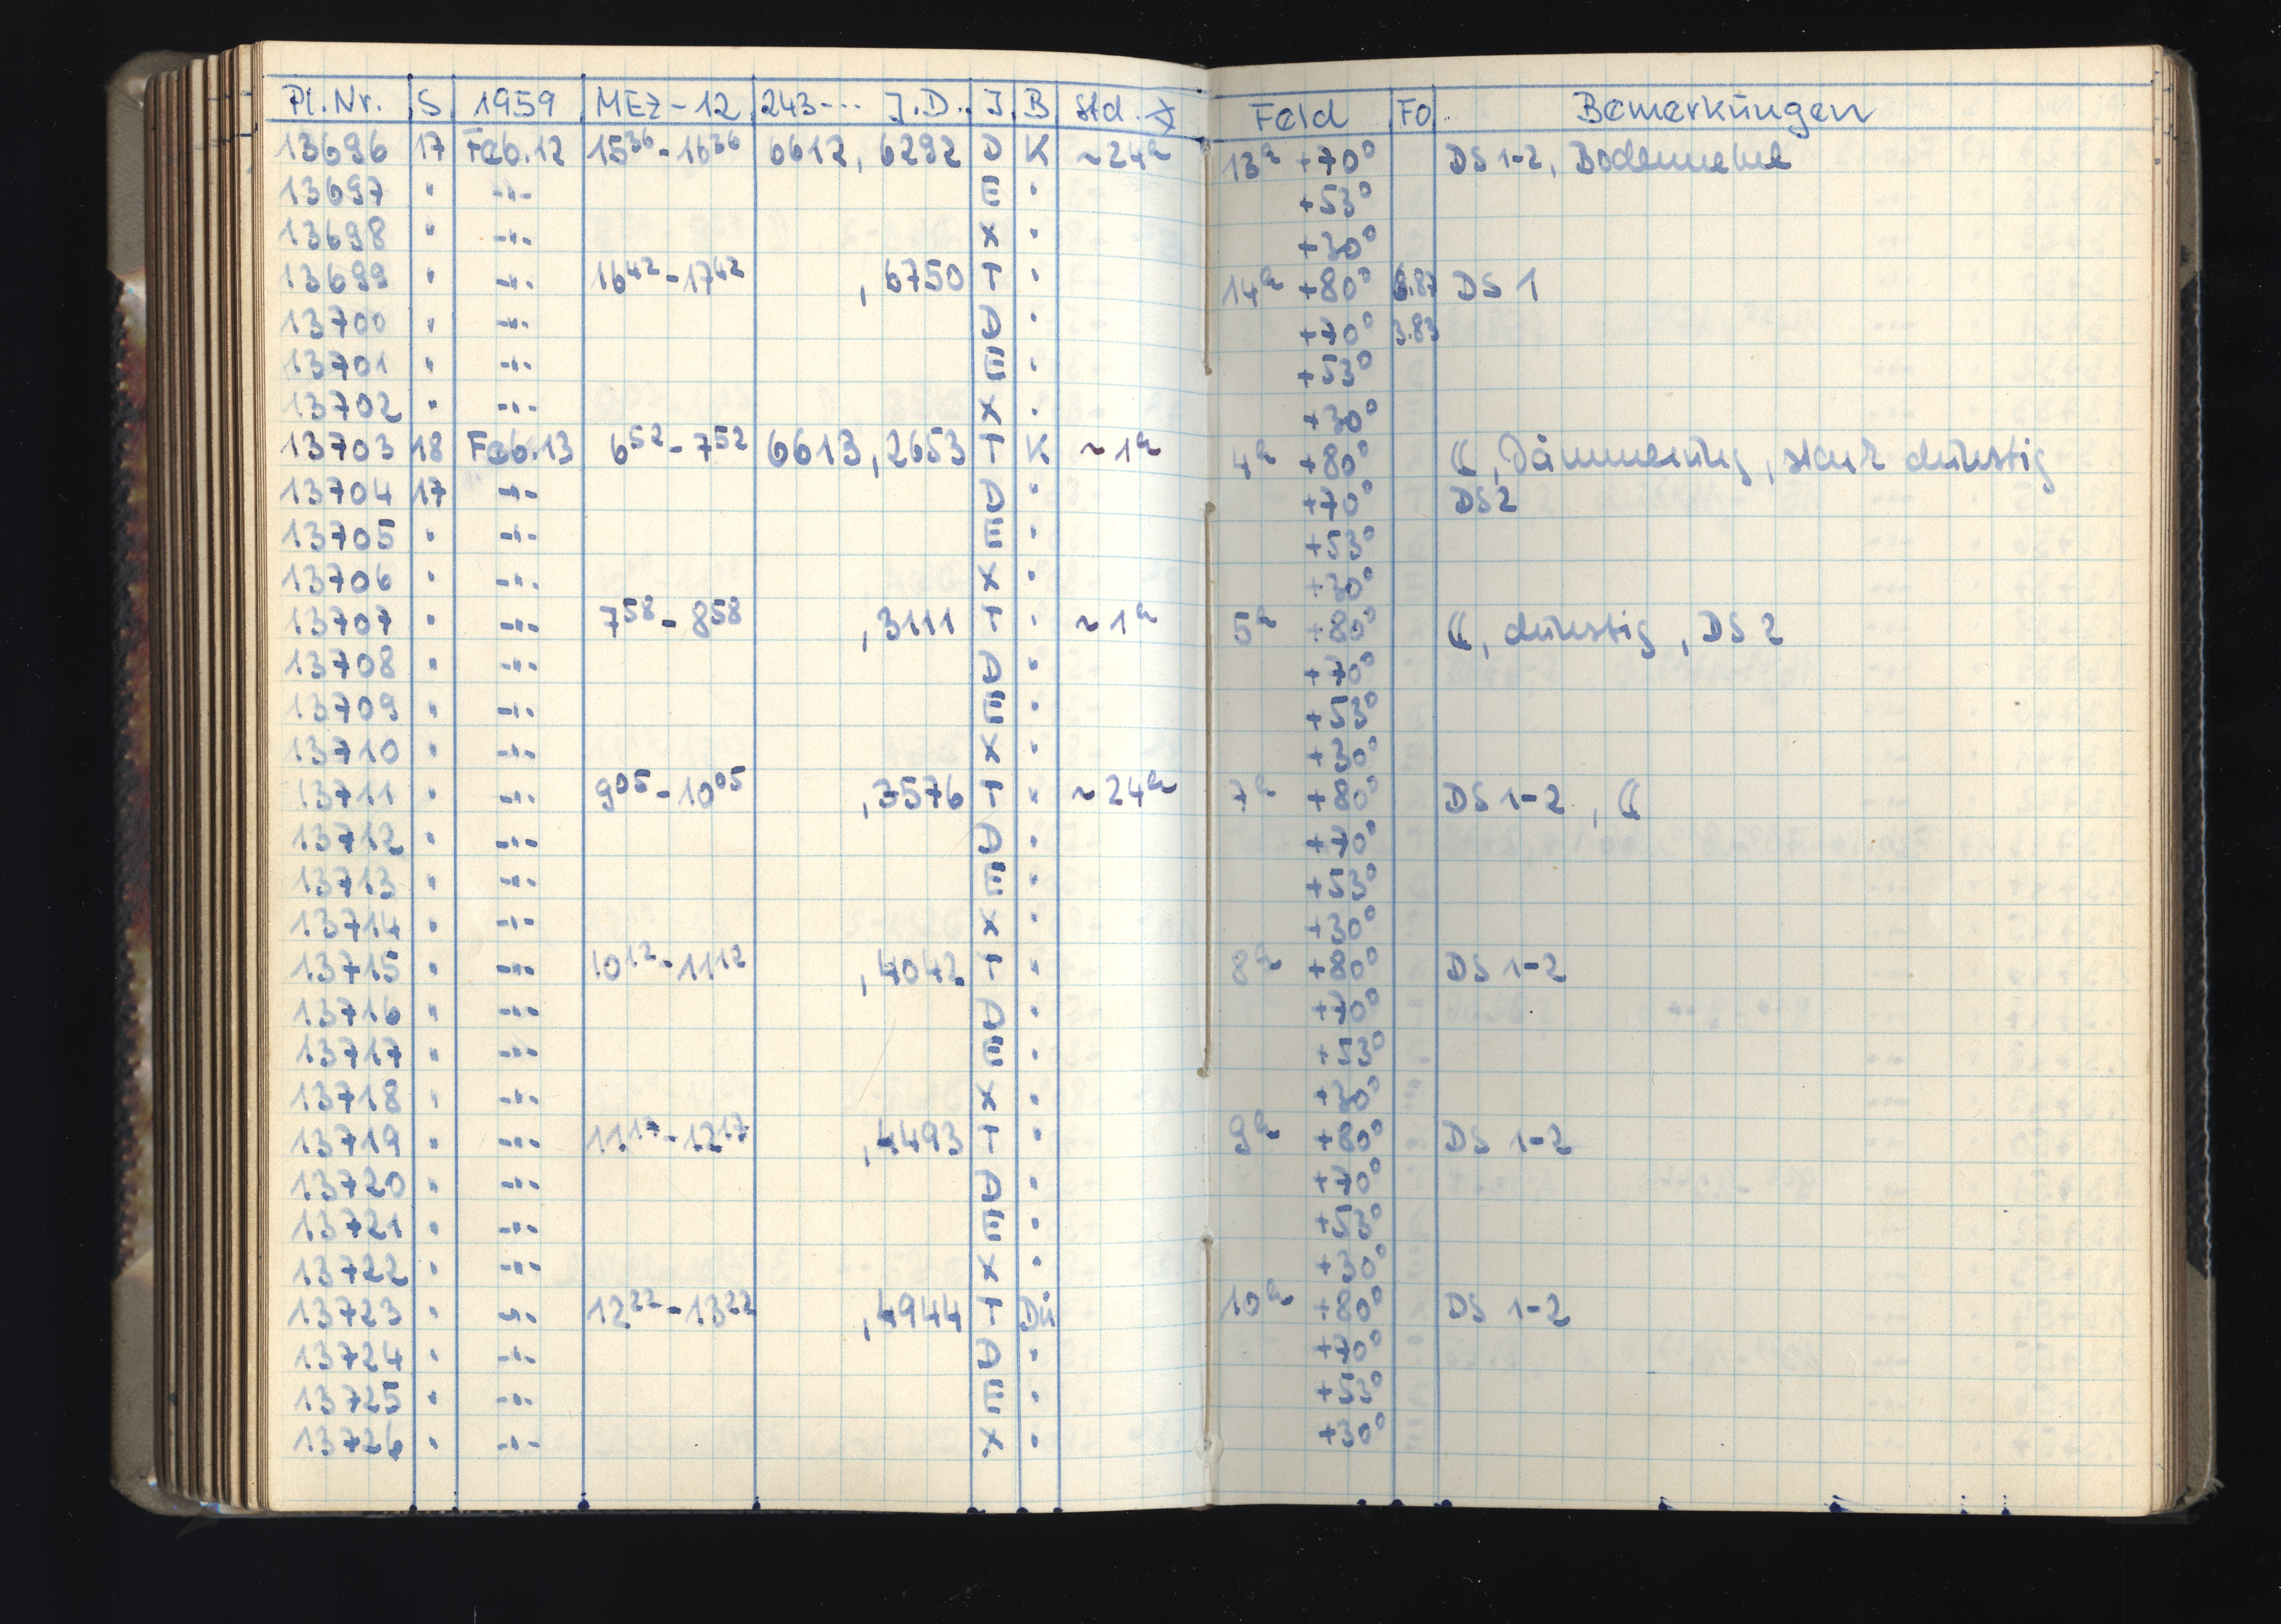 Pl. Nr. S 1959 MEZ-12 243--- J.D. J. B Std. ∡ Feld Fo. Bemerkungen
13696 17 Feb.12 15³⁶-16³⁶ 6612, 6292 D K ~24ʰ 13ʰ +70° DS 1-2, Bodennebel
13697 " -"- E " +53°
13698 " -"- X " +30°
13699 " -"- 16⁴²-17⁴² ,6750 T " 14ʰ +80° 6.87 DS 1
13700 " -"- D " +70° 3.83
13701 " -"- E " +53°
13702 " -"- X " +30°
13703 18 Feb.13 6⁵²-7⁵² 6613,2653 T K ~1ʰ 4ʰ +80° ☾, Dämmerung, stark dunstig
13704 17 -"- D " +70° DS 2
13705 " -"- E " +53°
13706 " -"- X " +30°
13707 " -"- 7⁵⁸-8⁵⁸ ,3111 T " ~1ʰ 5ʰ +80° ☾, dunstig, DS 2
13708 " -"- D " +70°
13709 " -"- E " +53°
13710 " -"- X " +30°
13711 " -"- 9⁰⁵-10⁰⁵ ,3576 T " ~24ʰ 7ʰ +80° DS 1-2, ☾
13712 " -"- D " +70°
13713 " -"- E " +53°
13714 " -"- X " +30°
13715 " -"- 10¹²-11¹² ,4042 T " 8ʰ +80° DS 1-2
13716 " -"- D " +70°
13717 " -"- E " +53°
13718 " -"- X " +30°
13719 " -"- 11¹⁷-12¹⁷ ,4493 T " 9ʰ +80° DS 1-2
13720 " -"- D " +70°
13721 " -"- E " +53°
13722 " -"- X " +30°
13723 " -"- 12²²-13²² ,4944 T Dü 10ʰ +80° DS 1-2
13724 " -"- D " +70°
13725 " -"- E " +53°
13726 " -"- X " +30°